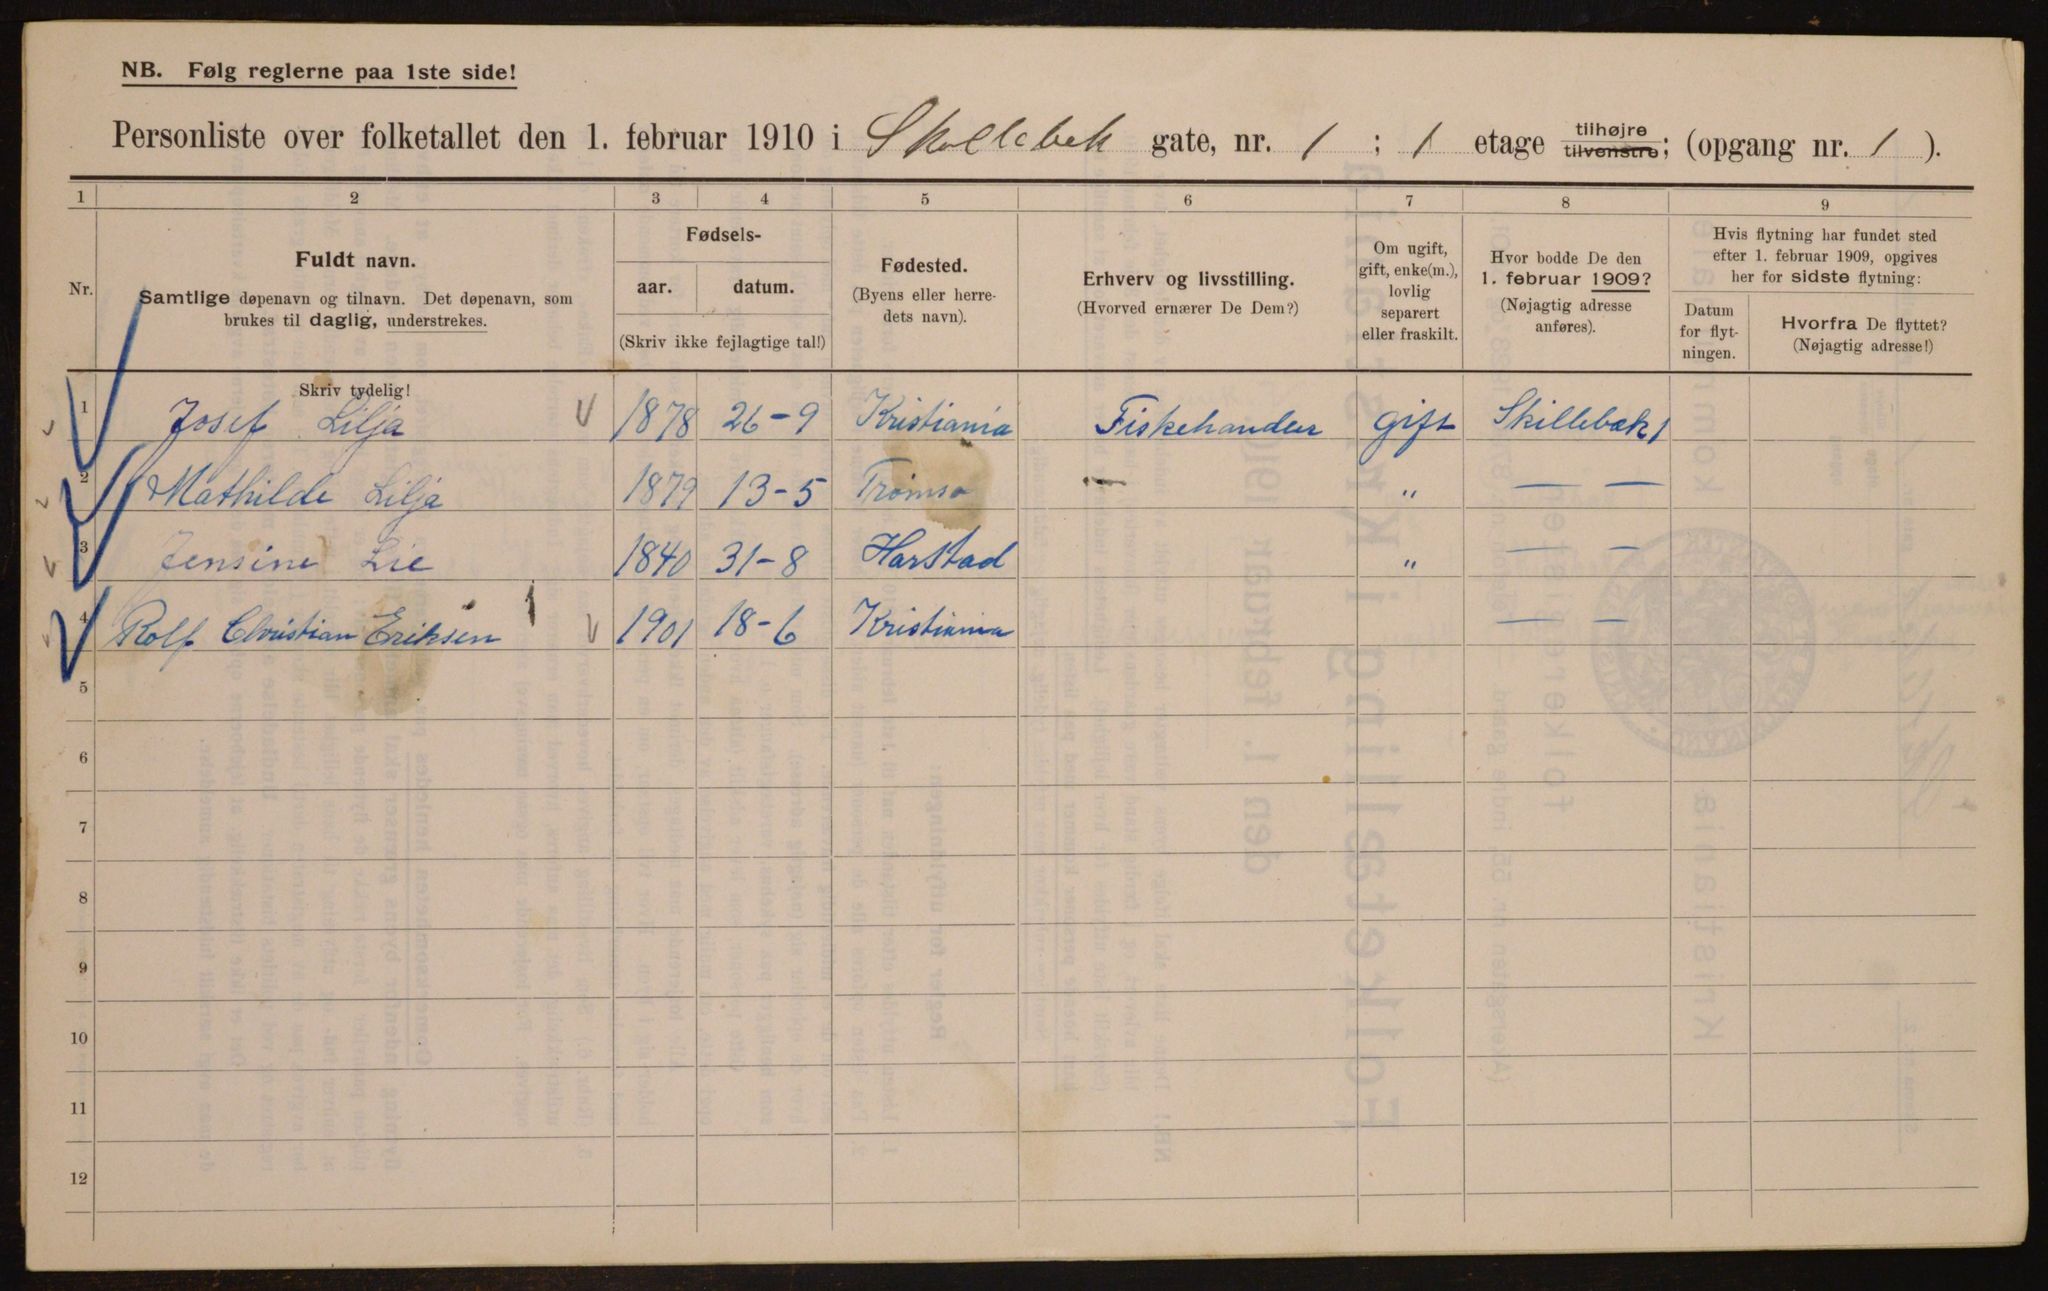 NB. Følg reglerne paa 1ste side!
Personliste over folketallet den 1. februar 1910 i Skillebek gate, nr. 1 ; 1 etage tilhøjre tilvenstre; (opgang nr. 1 ).
1 2 3 4 5 6 7 8 9
Nr.
Fuldt navn.
Samtlige døpenavn og tilnavn. Det døpenavn, som
brukes til daglig, understrekes.
Skriv tydelig!
Fødsels-
aar. datum.
(Skriv ikke fejlagtige tal!)
Fødested.
(Byens eller herre-
dets navn).
Erhverv og livsstilling.
(Hvorved ernærer De Dem?)
Om ugift,
gift, enke(m.),
lovlig
separert
eller fraskilt.
Hvor bodde De den
1. februar 1909?
(Nøjagtig adresse
anføres).
Hvis flytning har fundet sted
efter 1. februar 1909, opgives
her for sidste flytning:
Datum
for flyt-
ningen.
Hvorfra De flyttet?
(Nøjagtig adresse!)
1 Josef Lilja 1878 26-9 Kristiania Fiskehandler gift Skillebæk 1
2 Mathilde Lilja 1879 13-5 Tromsø — " — —
3 Jensine Lie 1840 31-8 Harstad " — —
4 Rolf Christian Eriksen 1 1901 18-6 Kristiania — —
5
6
7
8
9
10
11
12